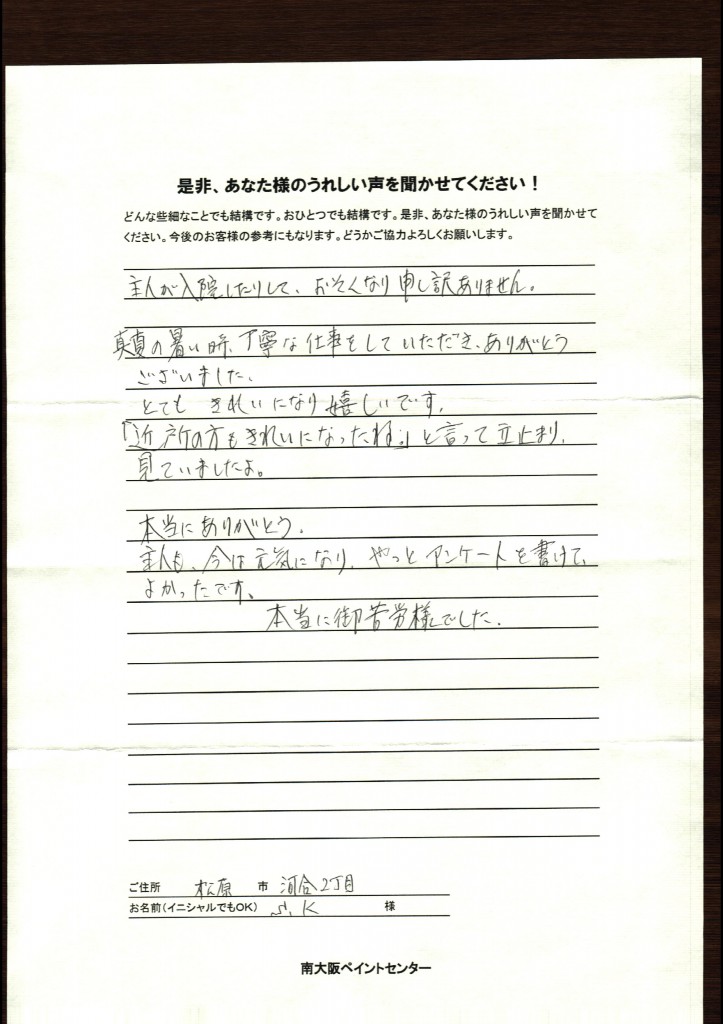 是非、あなた様のうれしい声を聞かせてください！
どんな些細なことでも結構です。おひとつでも結構です。是非、あなた様のうれしい声を聞かせて
ください。今後のお客様の参考にもなります。どうかご協力よろしくお願いします。
主人が入院したりして、おそくなり申し訳ありません。
真夏の暑い時、丁寧な仕事をしていただき、ありがとう
ございました、
とても きれいになり嬉しいです。
「近所の方もきれいになったね。」と言って立止まり、
見ていましたよ。
本当にありがとう。
主人も、今は元気になり、やっとアンケートを書けて、
よかったです。
本当に御苦労様でした。
ご住所 松原 市 河合2丁目
お名前（イニシャルでもOK） S.K 様
南大阪ペイントセンター